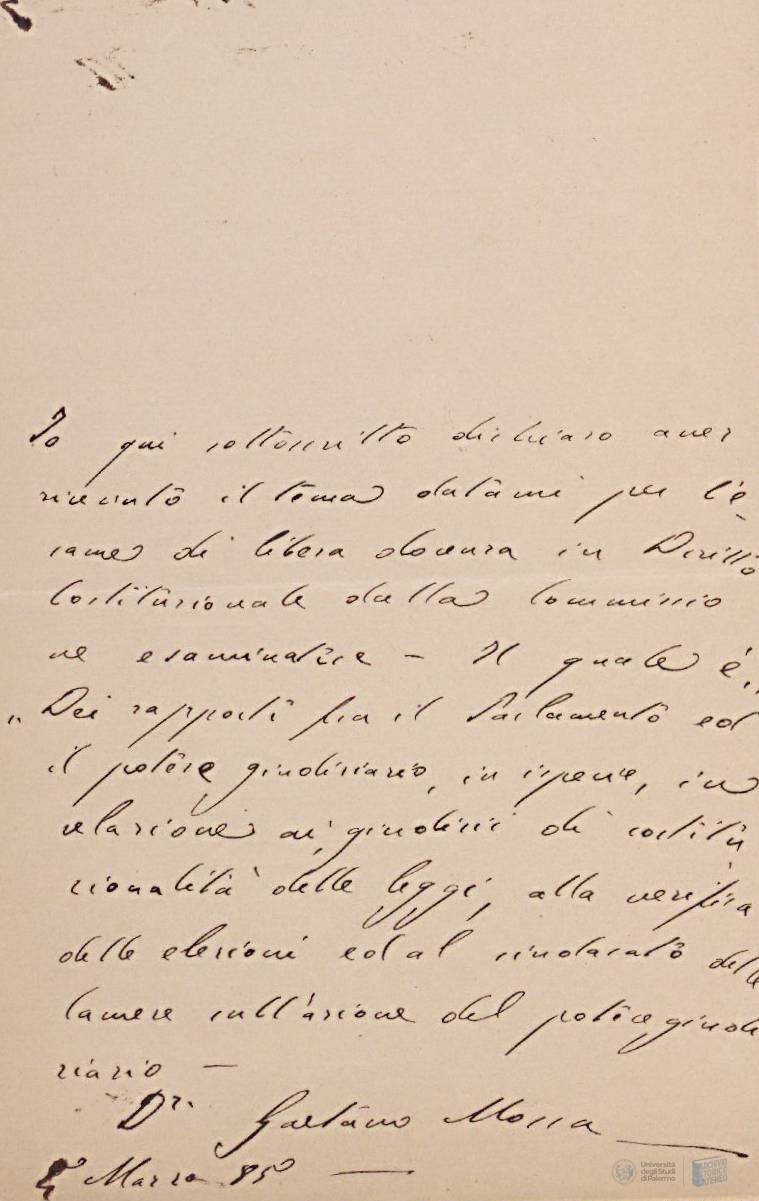 Io qui sottoscritto dichiaro aver
ricevuto il tema datami per l'e-
same di libera docenza in Diritto
Costituzionale dalla Commissio
ne esaminatrice — Il quale è,
„ Dei rapporti fra il Parlamento ed
il potere giudiziario, in ispecie, in
relazione ai giudizii di costitu
zionalità delle leggi, alla verifica
delle elezioni ed al sindacato delle
Camere sull'azione del potere giudi
ziario —
Dr. Gaetano Mosca
Marzo 85
Università
degli Studi
di Palermo
ARCHIVIO
STORICO
ATENEO